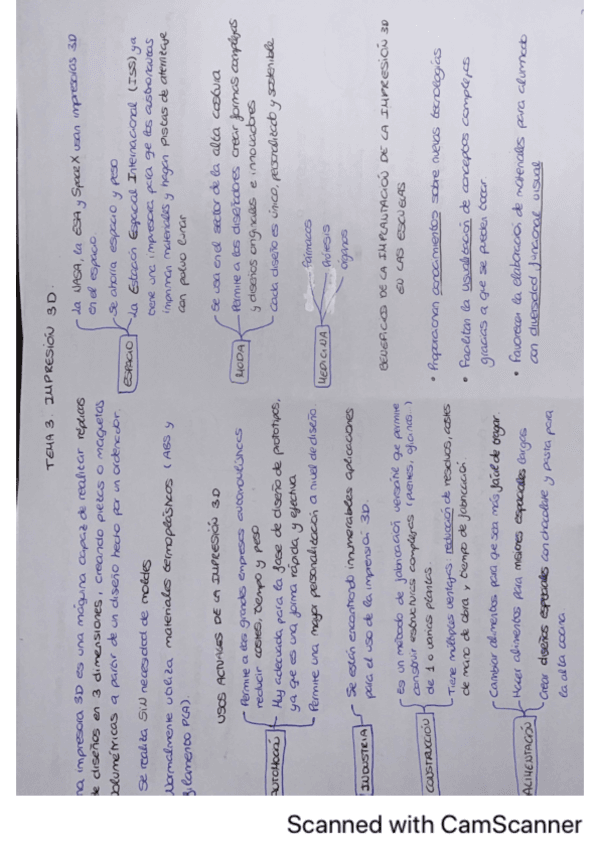 TEMA 3. IMPRESIÓN 3D.
na impresora 3D es una máquina capaz de realizar réplicas
de diseños en 3 dimensiones, creando piezas o maquetas
volumétricas a partir de un diseño hecho por un ordenador.
Se realiza SIN necesidad de moldes
Normalmente utiliza materiales termoplásticos (ABS y
filamento PLA).
USOS ACTUALES DE LA IMPRESIÓN 3D
AUTOMOCIÓN
Permite a las grandes empresas automovilísticas
reducir costes, tiempo y peso
Muy adecuada para la fase de diseño de prototipos,
ya que es una forma rápida y efectiva
Permite una mayor personalización a nivel de diseño.
INDUSTRIA
Se están encontrando innumerables aplicaciones
para el uso de la impresión 3D.
CONSTRUCCIÓN
Es un método de fabricación versátil que permite
construir estructuras complejas (puentes, oficinas...)
de 1 o varias plantas.
Tiene múltiples ventajas: reducción de residuos, costes
de mano de obra y tiempo de fabricación.
ALIMENTACIÓN
Cambiar alimentos para que sea más fácil de tragar.
Hacer alimentos para misiones espaciales largas
Crear diseños especiales con chocolate y pasta para
la alta cocina
ESPACIO
La NASA, la ESA y SpaceX usan impresoras 3D
en el espacio.
Se ahorra espacio y peso
La Estación Espacial Internacional (ISS) ya
tiene una impresora para que los astronautas
impriman materiales y hagan pistas de aterrizaje
con polvo lunar
MODA
Se usa en el sector de la alta costura
Permite a los diseñadores crear formas complejas
y diseños originales e innovadores
Cada diseño es único, personalizado y sostenible
MEDICINA
Fármacos
Prótesis
Órganos
BENEFICIOS DE LA IMPLANTACIÓN DE LA IMPRESIÓN 3D
EN LAS ESCUELAS
• Proporcionan conocimientos sobre nuevas tecnologías
• Facilitan la visualización de conceptos complejos
gracias a que se pueden tocar
• Favorecen la elaboración de materiales para alumnado
con diversidad funcional visual
Scanned with CamScanner